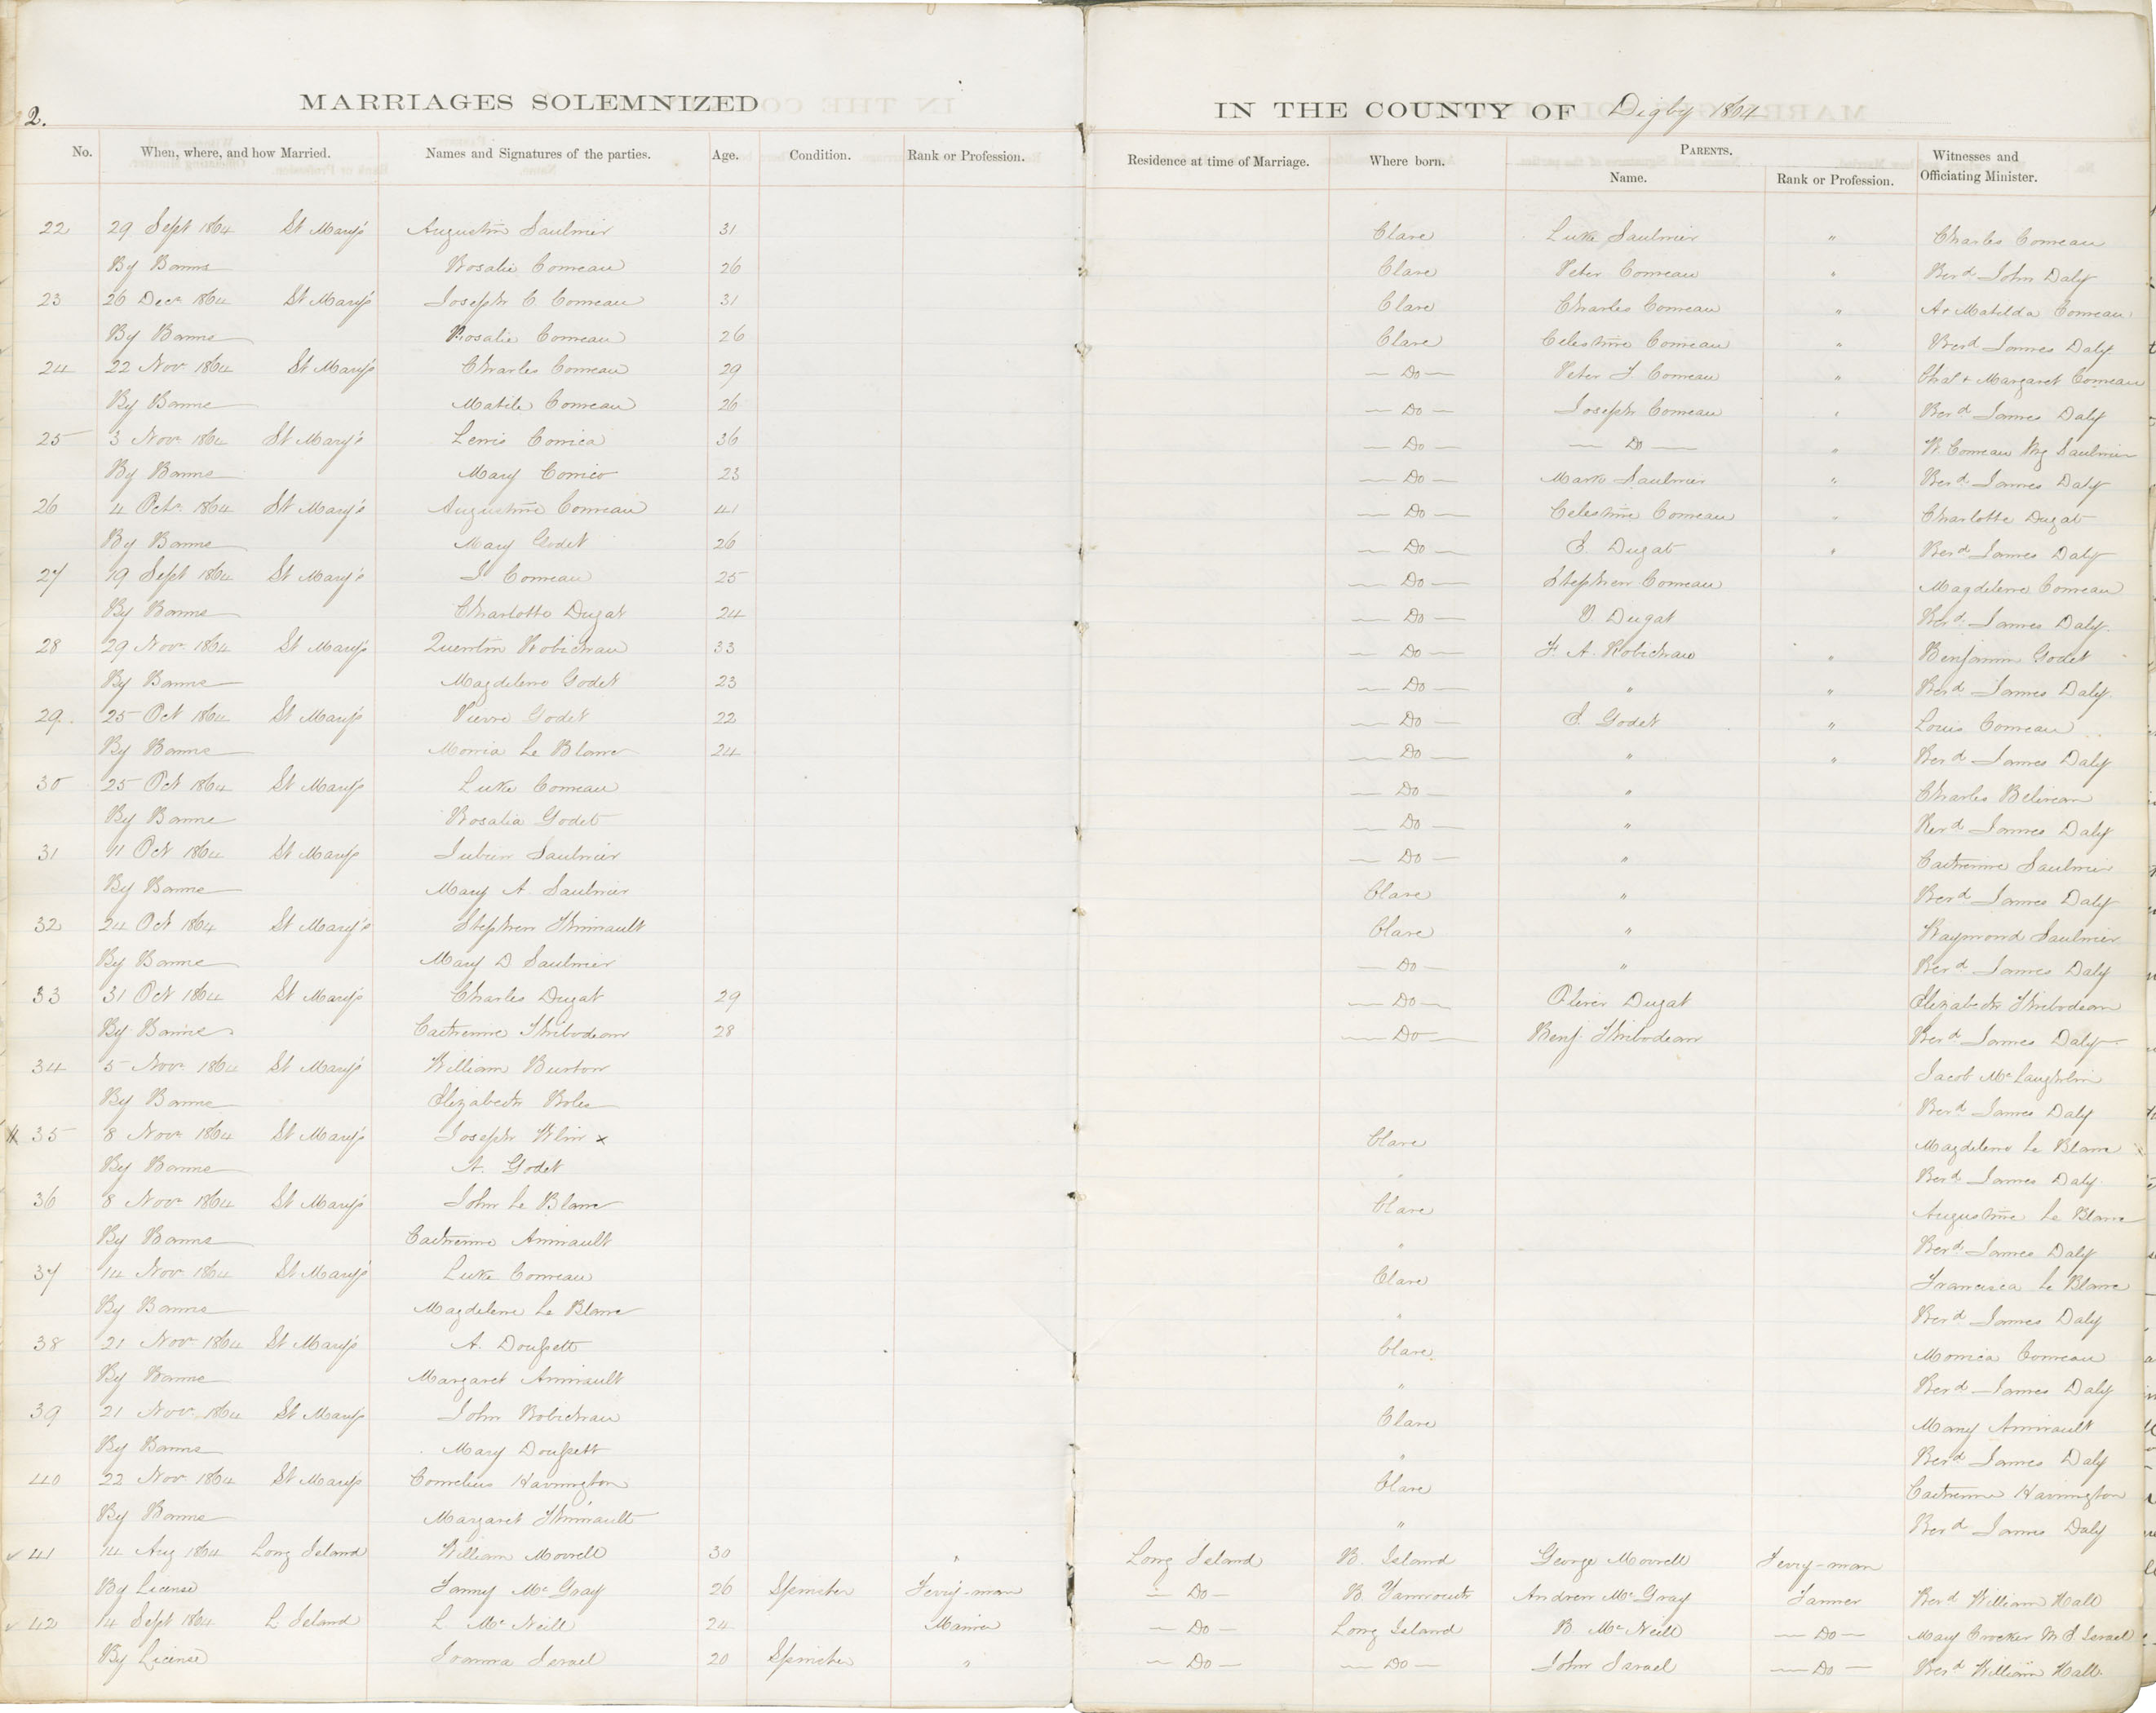 2.
MARRIAGES SOLEMNIZED IN THE COUNTY OF Digby 1864
No. When, where, and how Married. Names and Signatures of the parties. Age. Condition. Rank or Profession. Residence at time of Marriage. Where born. PARENTS. Witnesses and Officiating Minister.
Name. Rank or Profession.
22 29 Sept 1864 St Mary's Augustin Saulnier 31 Clare Luke Saulnier " Charles Comeau
By Banns Rosalie Comeau 26 Clare Peter Comeau " Revd John Daly
23 26 Decr 1864 St Mary's Joseph C Comeau 31 Clare Charles Comeau " A + Matilda Comeau
By Banns Rosalie Comeau 26 Clare Celestine Comeau " Revd James Daly
24 22 Nov 1864 St Mary's Charles Comeau 29 Do Peter F Comeau " Chas + Margaret Comeau
By Banns Matile Comeau 26 Do Joseph Comeau " Revd James Daly
25 3 Nov 1864 St Mary's Lewis 36 Do Do " W. Comeau Mg Saulnier
By Banns Mary 23 Do Mark Saulnier " Revd James Daly
26 4 Octr 1864 St Mary's Augustine Comeau 41 Do Celestine Comeau " Charlotte Dugat
By Banns Mary Godet 26 Do S. Dugat " Revd James Daly
27 19 Sept 1864 St Mary's J Comeau 25 Do Stephen Comeau Magdelene Comeau
By Banns Charlotte Dugat 24 Do V Dugat Revd James Daly
28 29 Nov 1864 St Mary's Quentin Robichau 33 Do F. A. Robichau " Benjamin Godet
By Banns Magdelene Godet 23 Do " " Revd James Daly
29 25 Oct 1864 St Mary's Pierre Godet 22 Do S. Godet " Louis Comeau
By Banns Le Blanc 24 Do " " Revd James Daly
30 25 Oct 1864 St Mary's Luke Comeau Do " Charles Beliveau
By Banns Rosalia Godet Do " Revd James Daly
31 11 Oct 1864 St Mary's Saulnier Do " Catherine Saulnier
By Banns Mary A Saulnier Clare " Revd James Daly
32 24 Oct 1864 St Mary's Stephen Thimault Clare " Raymond Saulnier
By Banns Mary D Saulnier Do " Revd James Daly
33 31 Oct 1864 St Mary's Charles Dugat 29 Do Oliver Dugat Elizabeth Thibodeau
By Banns Catherine Thibodeau 28 Do Benj. Thibodeau Revd James Daly
34 5 Nov 1864 St Mary's William Burton Jacob McLaughlin
By Banns Elizabeth Boles Revd James Daly
35 8 Nov 1864 St Mary's Joseph x Clare Magdelene Le Blanc
By Banns A. Godet " Revd James Daly
36 8 Nov 1864 St Mary's John Le Blanc Clare Augustine Le Blanc
By Banns Catherine Amirault " Revd James Daly
37 14 Nov 1864 St Mary's Luke Comeau Clare Francisca Le Blanc
By Banns Magdelene Le Blanc " Revd James Daly
38 21 Nov 1864 St Mary's A. Doussett Clare Monica Comeau
By Banns Margaret Amirault " Revd James Daly
39 21 Nov 1864 St Mary's John Robichau Clare Mary Amirault
By Banns Mary Doussett " Revd James Daly
40 22 Nov 1864 St Mary's Cornelius Harrington Clare Catherine Harrington
By Banns Margaret Thimault " Revd James Daly
41 14 Aug 1864 Long Island William Morrell 30 " Long Island B. Island George Morrell Ferry-man
By License Fanny McGray 26 Spinster Ferry-man Do B. Yarmouth Andrew McGray Farmer Revd William Hall
42 14 Sept 1864 L Island L. McNeill 24 Mariner Do Long Island B McNeill Do Mary Crocker M S Israel
By License Joanna Israel 20 Spinster " Do Do John Israel Do Revd William Hall